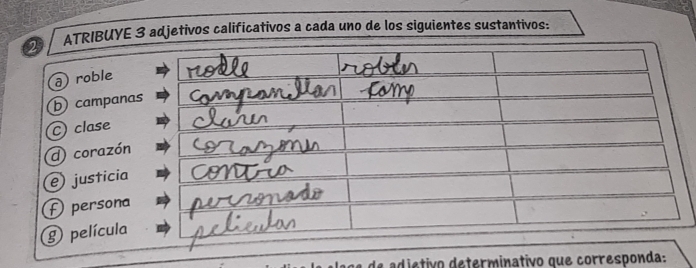 2 ATRIBUYE 3 adjetivos calificativos a cada uno de los siguientes sustantivos:
a) roble roble robles
b) campanas campanillas camp
c) clase clases
d) corazón corazones
e) justicia contra
f) persona personado
g) película peliculas
de adjetivo determinativo que corresponda: